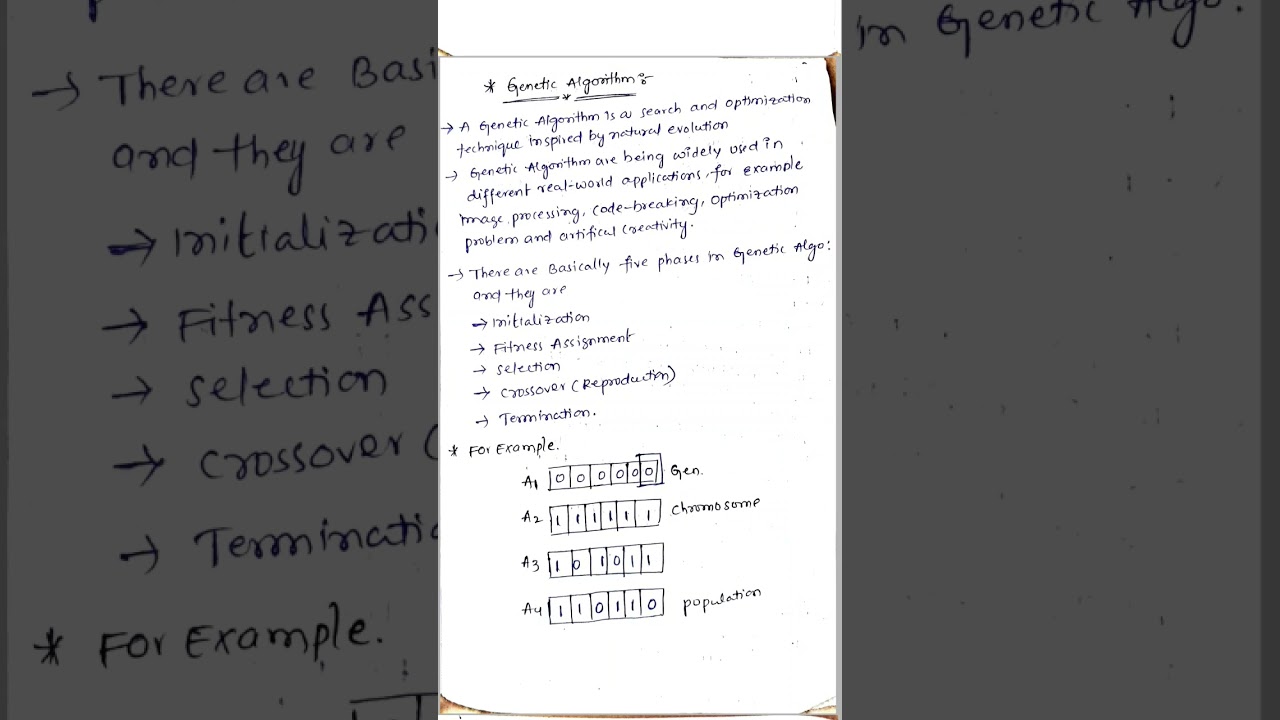 * Genetic Algorithm :-
→ A Genetic Algorithm is a search and optimization
technique inspired by natural evolution
→ Genetic Algorithm are being widely used in
different real-world applications, for example
Image processing, code-breaking, optimization
problem and artifical creativity.
→ There are Basically five phases in Genetic Algo:
and they are
→ Initialization
→ Fitness Assignment
→ selection
→ crossover (Reproduction)
→ Termination.
* For Example.
A1 0 0 0 0 0 0 Gen.
A2 1 1 1 1 1 1 chromosome
A3 1 0 1 0 1 1
A4 1 1 0 1 1 0 population
→ There are Basi
and they are
→ Initializati
→ Fitness Ass
→ selection
→ crossover (
→ Terminatio
* For Example.
in Genetic Algo: